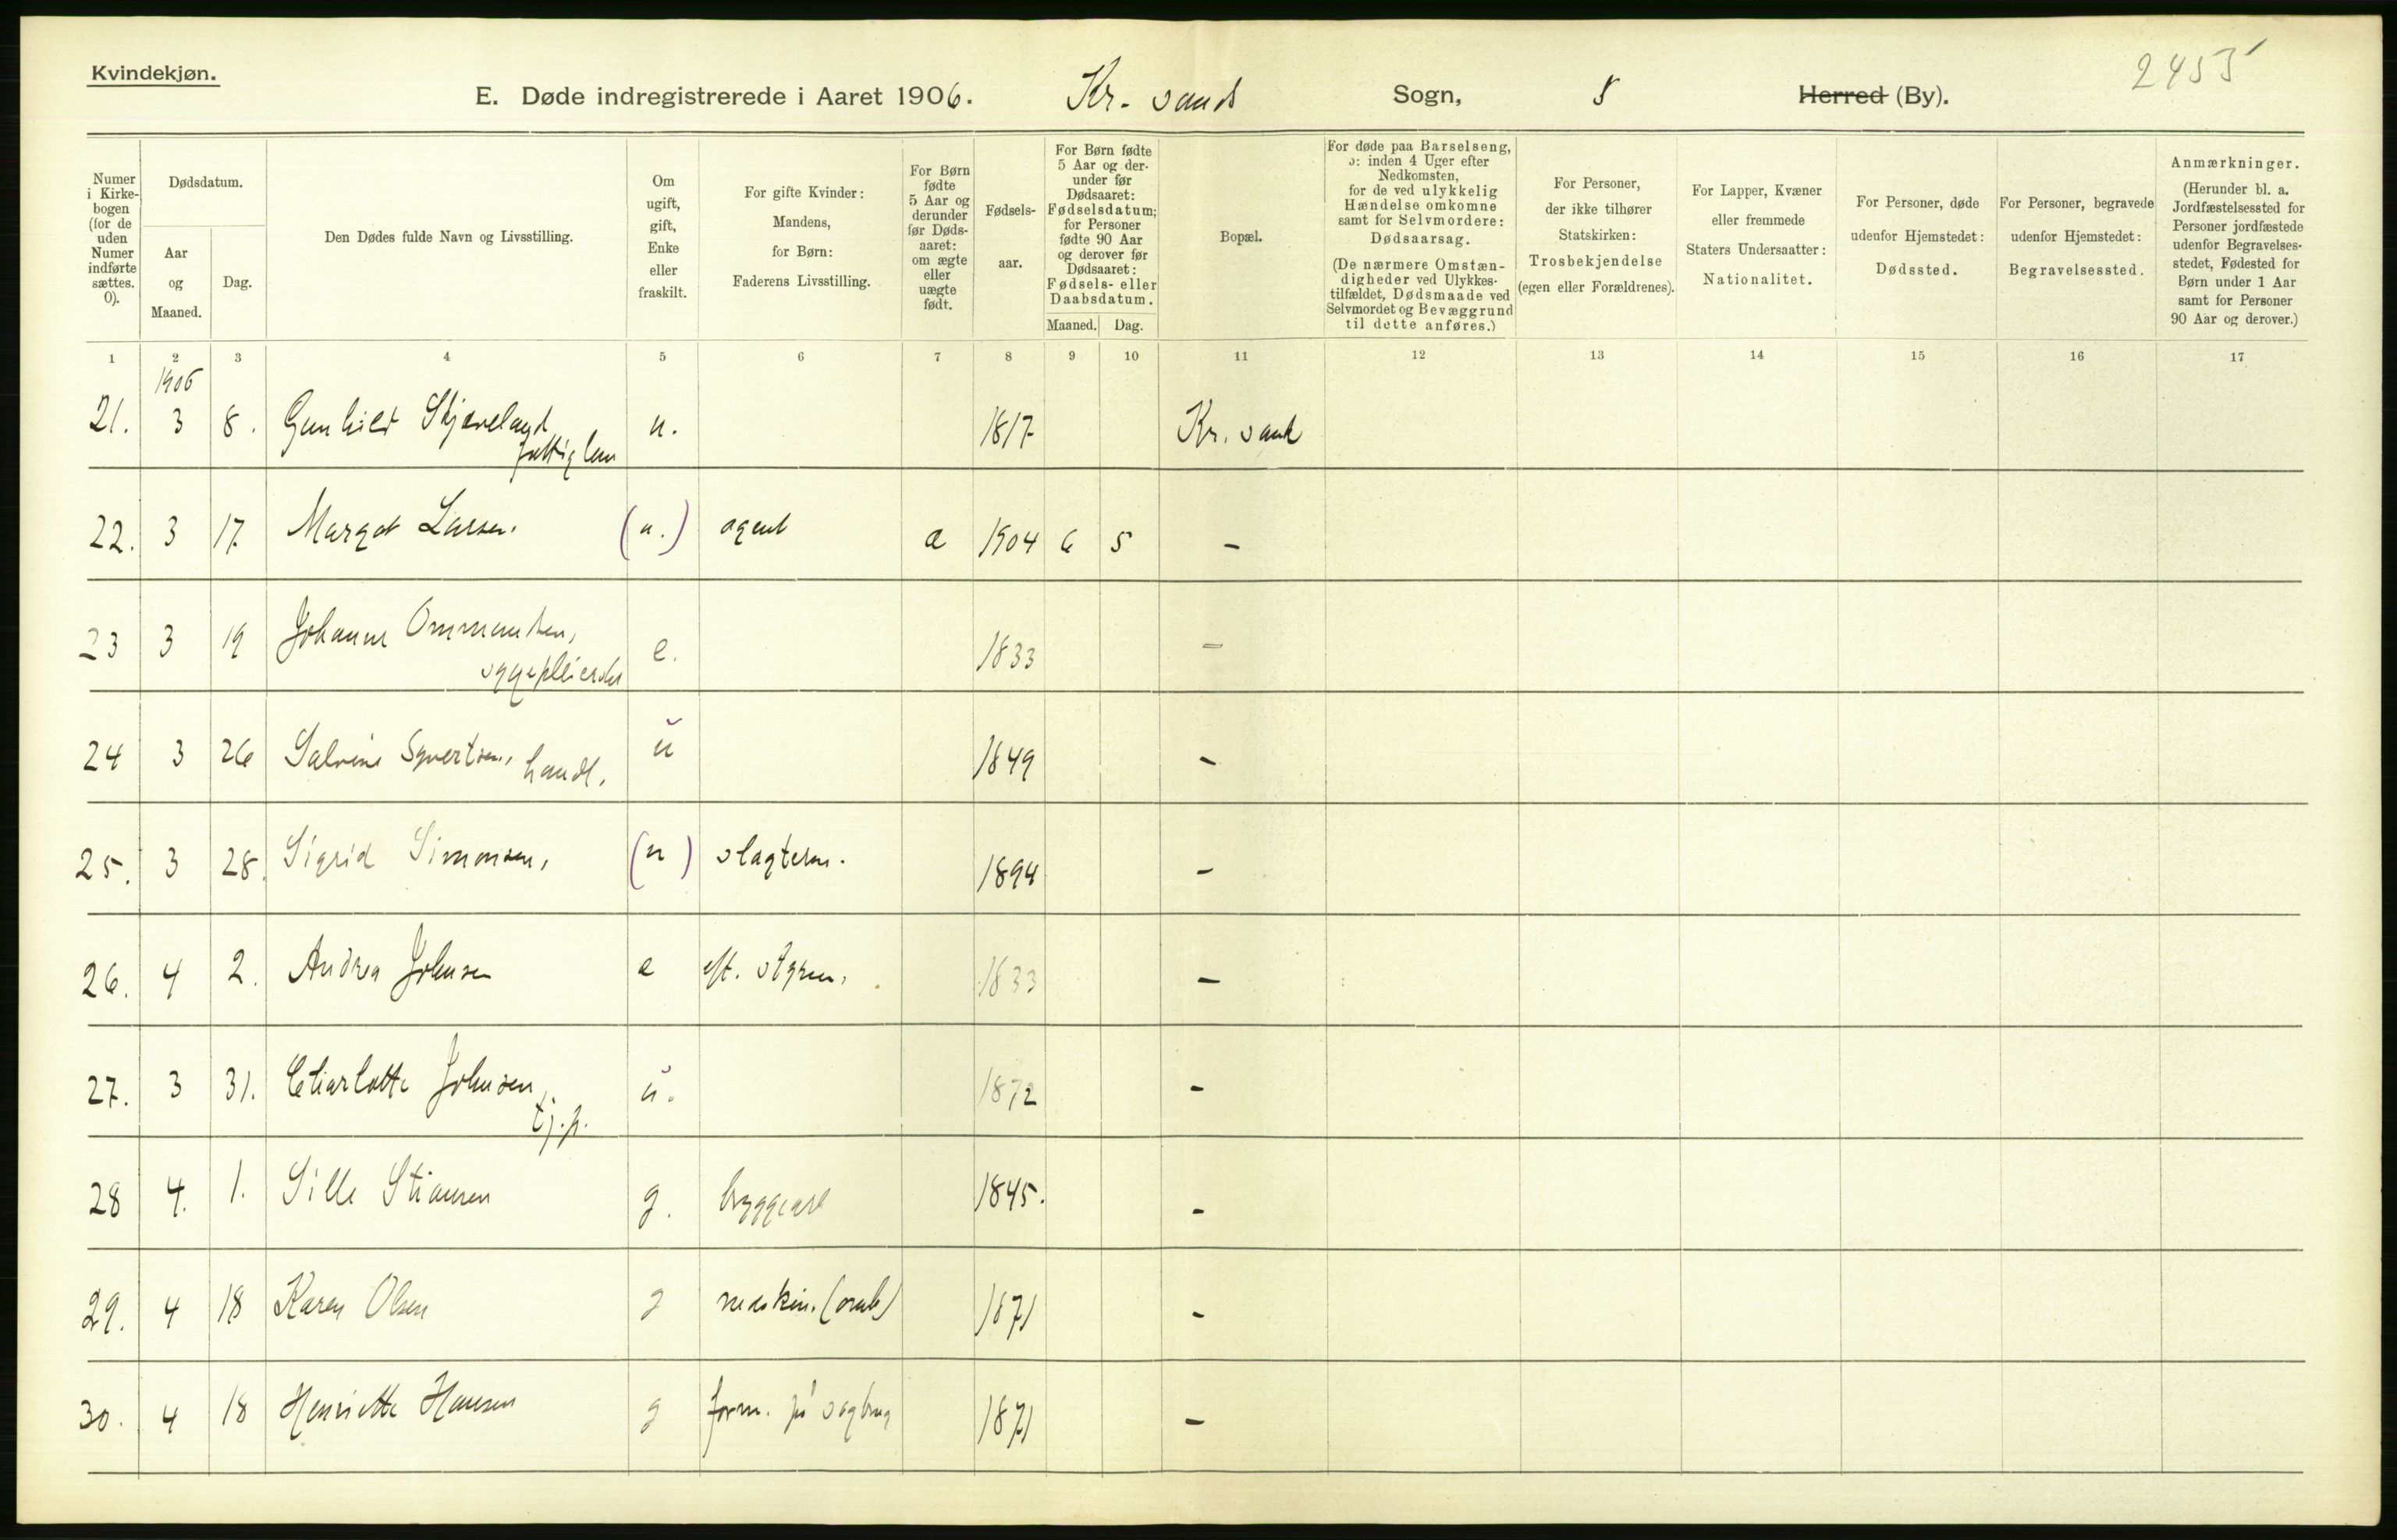 Kvindekjøn.
2455
E. Døde indregistrerede i Aaret 1906. Kr.sands Sogn, Herred (By).
Numer i Kirkebogen (for de uden Numer indførte sættes. 0).
Dødsdatum.
Aar og Maaned.
Dag.
Den Dødes fulde Navn og Livsstilling.
Om ugift, gift, Enke eller fraskilt.
For gifte Kvinder: Mandens, for Børn: Faderens Livsstilling.
For Børn fødte 5 Aar og derunder før Dødsaaret: om ægte eller uægte født.
Fødselsaar.
For Børn fødte 5 Aar og derunder før Dødsaaret: Fødselsdatum; for Personer fødte 90 Aar og derover før Dødsaaret: Fødsels- eller Daabsdatum.
Maaned. Dag.
Bopæl.
For døde paa Barselseng, ɔ: inden 4 Uger efter Nedkomsten, for de ved ulykkelig Hændelse omkomne samt for Selvmordere: Dødsaarsag. (De nærmere Omstændigheder ved Ulykkestilfældet, Dødsmaade ved Selvmordet og Bevæggrund til dette anføres.)
For Personer, der ikke tilhører Statskirken: Trosbekjendelse (egen eller Forældrenes).
For Lapper, Kvæner eller fremmede Staters Undersaatter: Nationalitet.
For Personer, døde udenfor Hjemstedet: Dødssted.
For Personer, begravede udenfor Hjemstedet: Begravelsessted.
Anmærkninger. (Herunder bl. a. Jordfæstelsessted for Personer jordfæstede udenfor Begravelsesstedet, Fødested for Børn under 1 Aar samt for Personer 90 Aar og derover.)
1 2 3 4 5 6 7 8 9 10 11 12 13 14 15 16 17
1906
21. 3 8. Gunhild Skjæveland u. 1817 Kr.sand
fattiglem
22. 3 17 Margot Larsen. (u.) agent e 1904 6 5 -
23 3 19 Johanne Ommundsen, e. 1833 -
sygepleierske
24 3 26 Salvine Syvertsen, handl. u 1849 -
25. 3 28. Sigrid Simonsen, (u) slagterm. 1894 -
26. 4 2. Andrea Johnsen e eft. styrm. 1833 -
27. 3 31. Charlotte Johnsen, u. 1872 -
tj.p.
28 4. 1. Sille Stiansen g. bryggearb 1845. -
29. 4 18 Karen Olsen g maskin. (omb) 1871 -
30. 4 18 Henriette Hansen g form. på sagbrug 1871 -